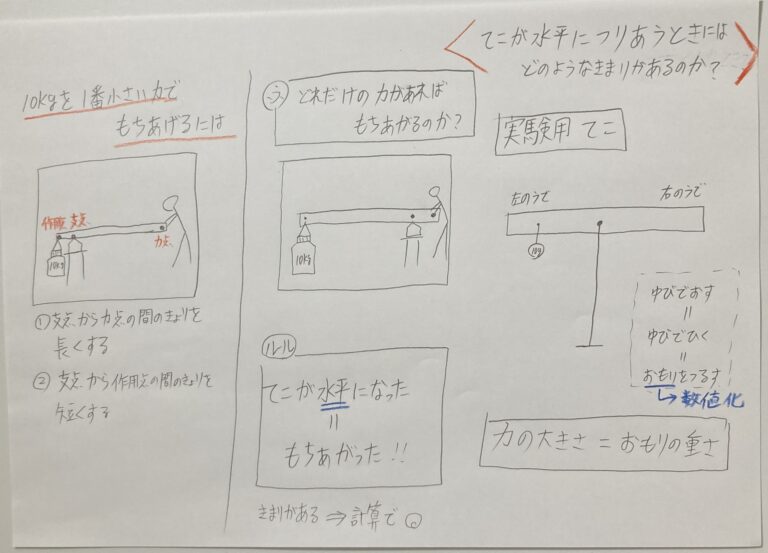 10kgを1番小さい力で
もちあげるには
作用点 支点
力点
10kg
①支点から力点の間のきょりを
長くする
② 支点から作用点の間のきょりを
短くする
どれだけの力があれば
もちあがるのか?
10kg
ルール
てこが水平になった
=
もちあがった!!
きまりがある ⇒ 計算で
てこが水平につりあうときには
どのようなきまりがあるのか?
実験用 てこ
左のうで
右のうで
10g
ゆびでおす
=
ゆびでひく
=
おもりをつるす
→数値化
力の大きさ = おもりの重さ